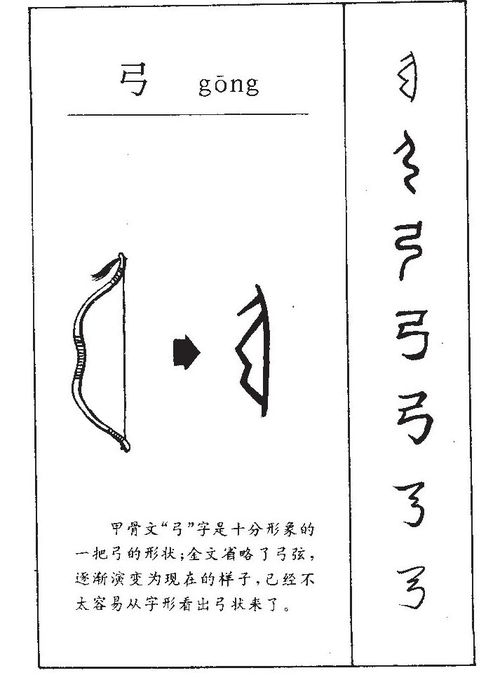 弓 gōng
甲骨文“弓”字是十分形象的
一把弓的形状;金文省略了弓弦,
逐渐演变为现在的样子,已经不
太容易从字形看出弓状来了。
弓
弓
弓
弓
弓
弓
弓